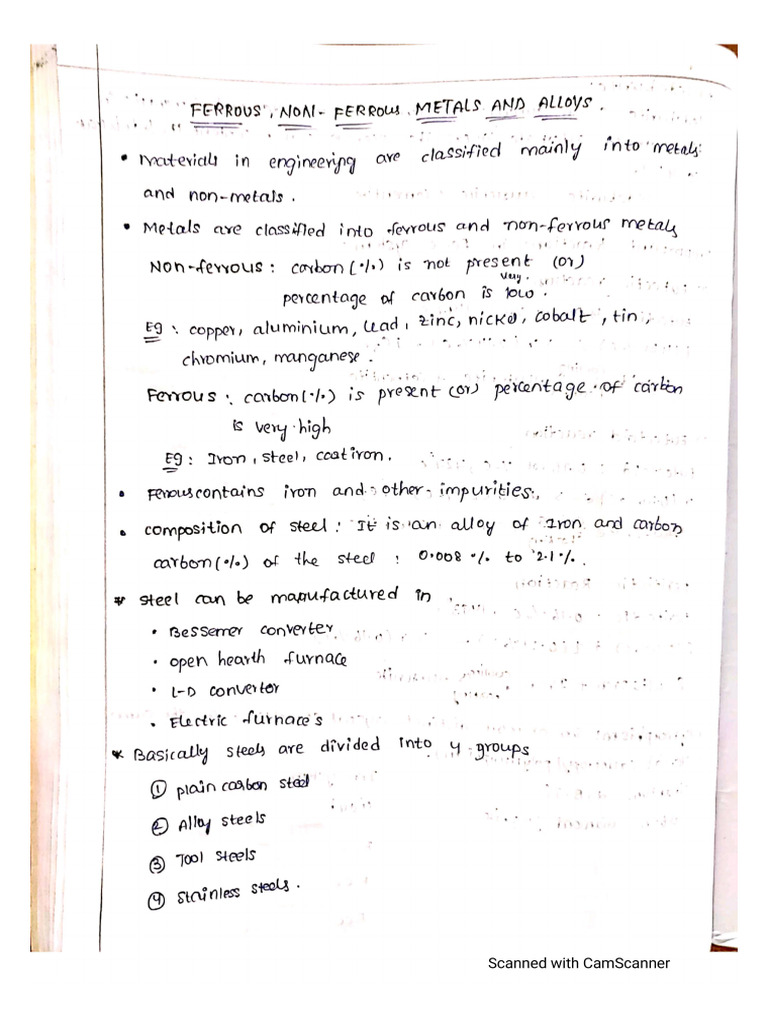 FERROUS, NON-FERROUS METALS AND ALLOYS.
• Materials in engineering are classified mainly into metals
and non-metals.
• Metals are classified into ferrous and non-ferrous metals
Non-ferrous : carbon(%) is not present (or)
very
percentage of carbon is low.
Eg : copper, aluminium, lead, zinc, nickel, cobalt, tin,
chromium, manganese.
Ferrous : carbon(%) is present (or) percentage of carbon
is very high
Eg : Iron, steel, cast iron.
• Ferrous contains iron and other impurities.
• composition of steel : It is an alloy of Iron and carbon
carbon(%) of the steel : 0.008 % to 2.1%.
* steel can be manufactured in
• Bessemer converter
• open hearth furnace
• L-D convertor
• Electric furnace's
* Basically steels are divided into 4 groups
① plain carbon steel
② Alloy steels
③ Tool steels
④ Stainless steels.
Scanned with CamScanner